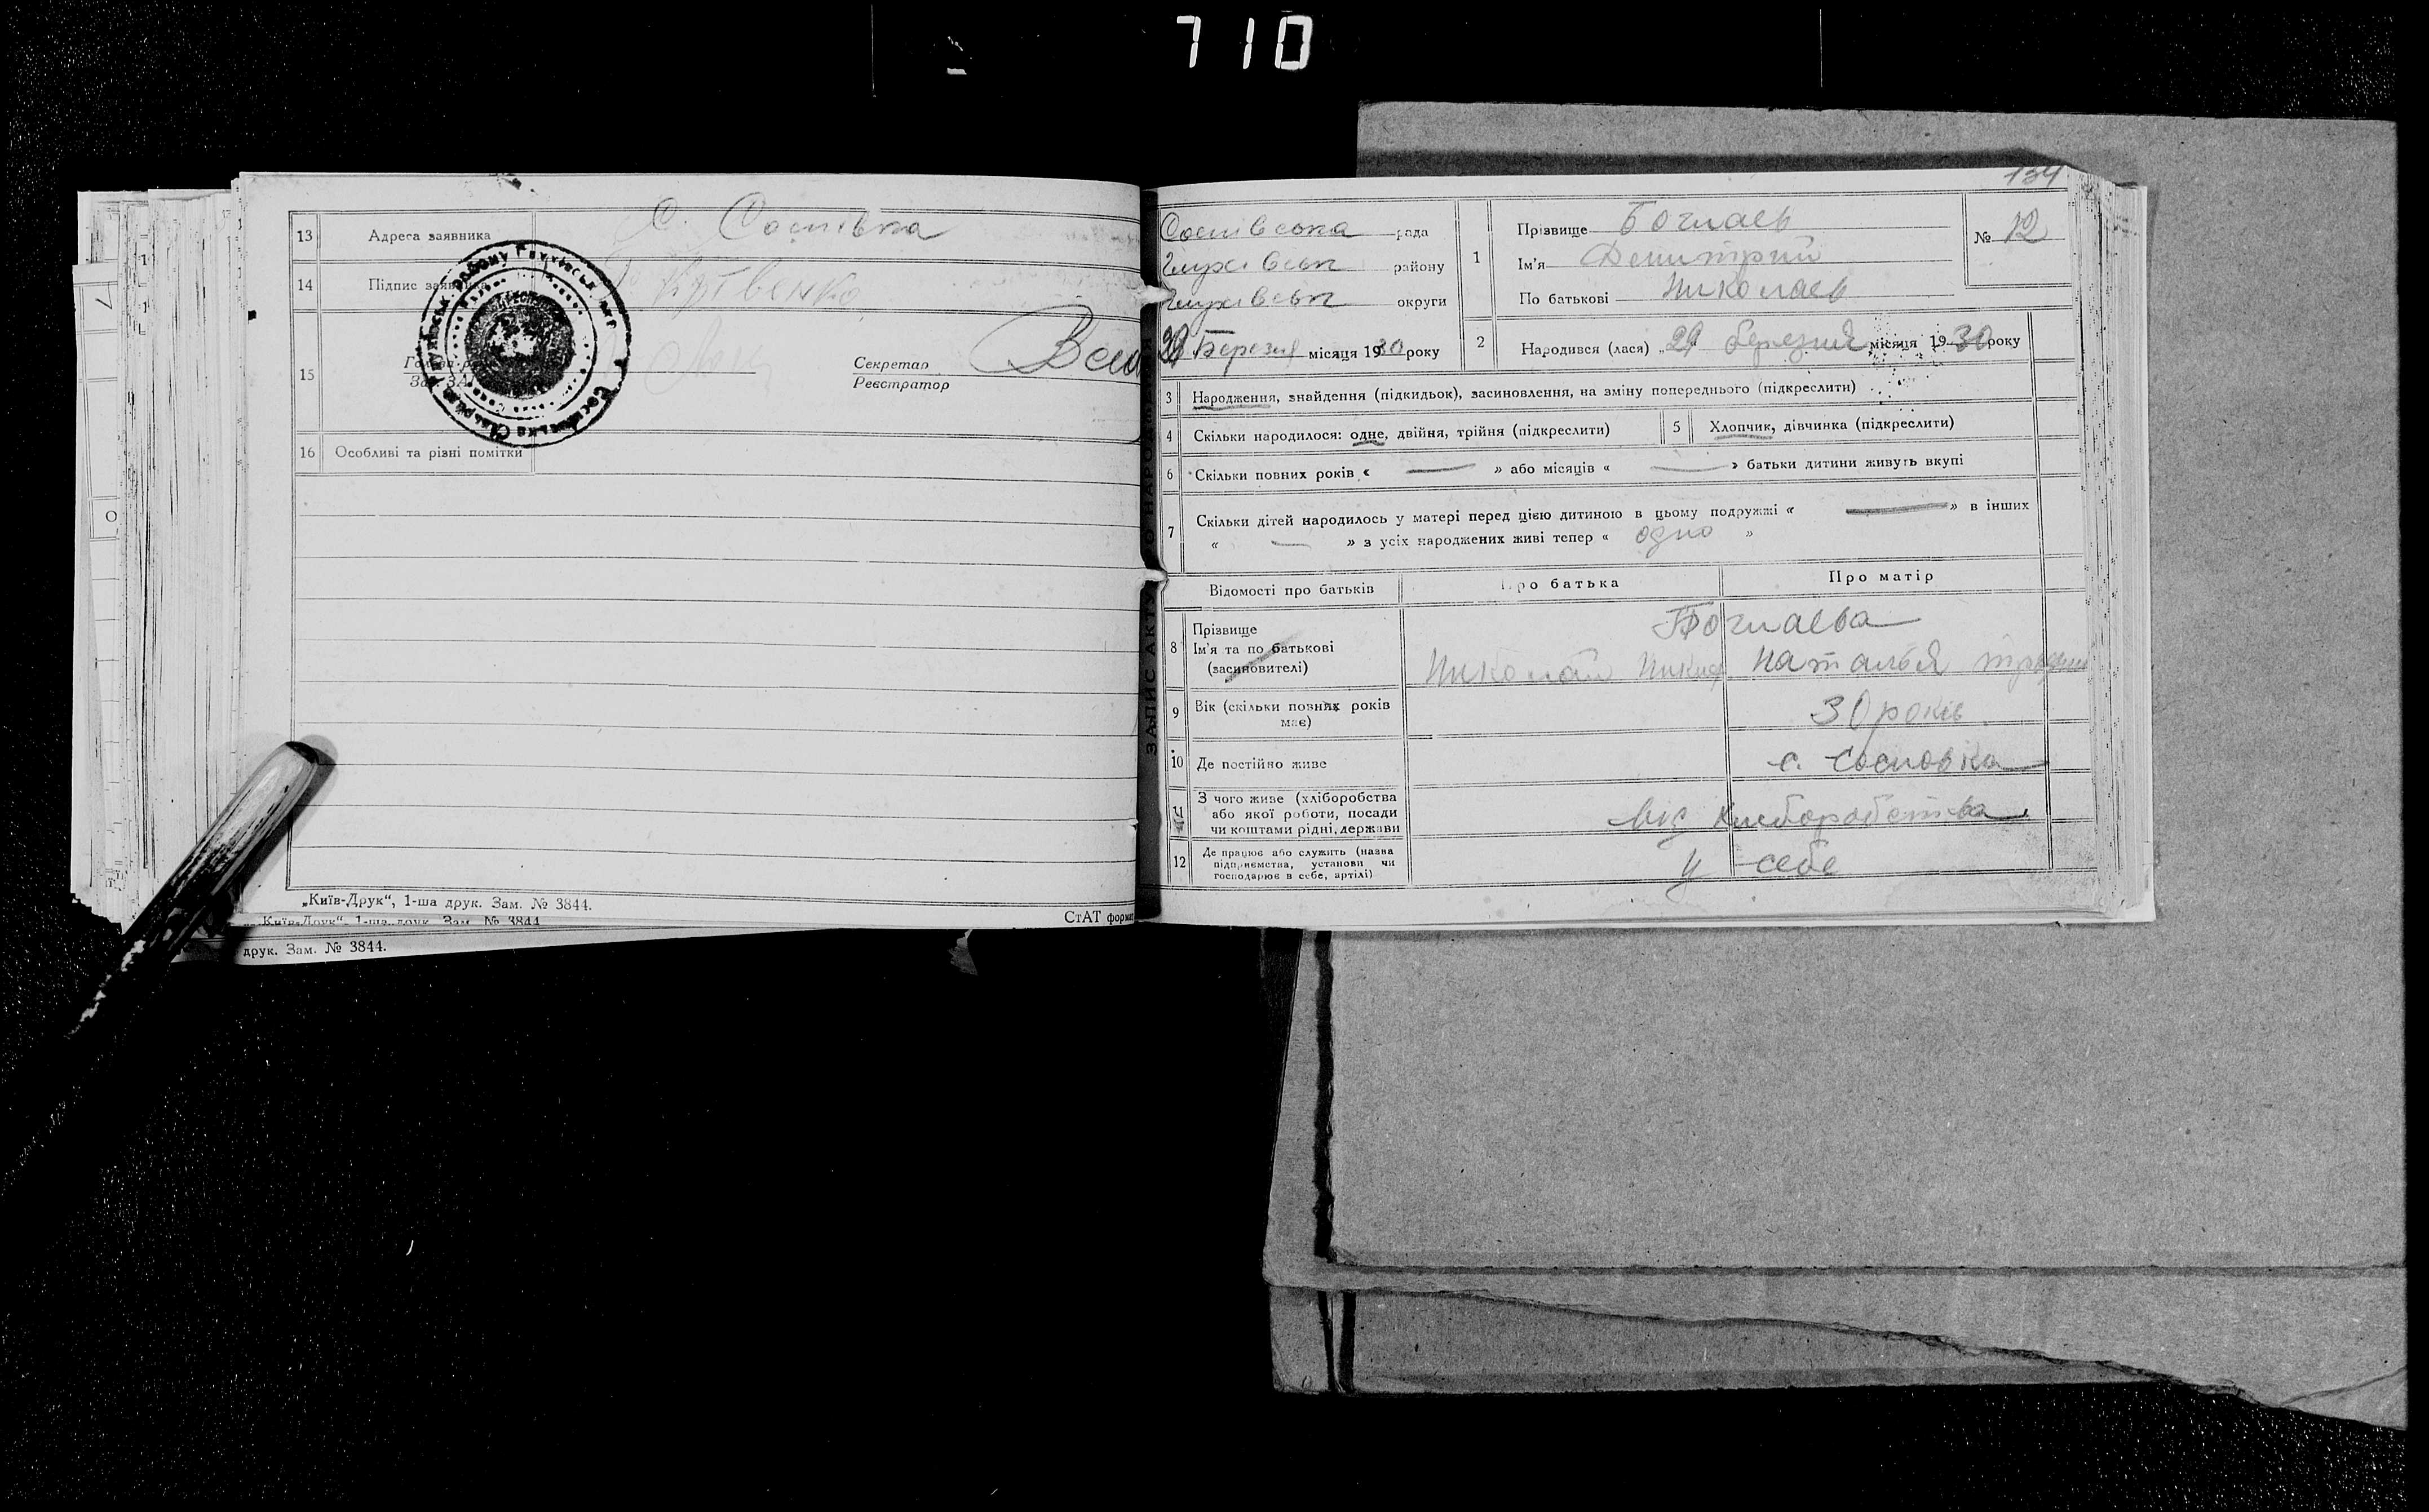 710
13 Адреса заявника С. Соснівка
14 Підпис
15
Секретар
Реєстратор
16 Особливі та різні помітки
„Київ-Друк“, 1-ша друк. Зам. № 3844.
СтАТ форма
„Київ-Друк“ 1-ша друк. Зам. № 3844
друк. Зам. № 3844.
ЗАПИС АКТУ ПРО НАРОДЖ
134
Соснівська рада
Глухівськ району
Глухівськ округи
Березня місяця 1930 року
1 Прізвище
Ім'я Демитрий
По батькові Николаев
№ 12
2 Народився (лася) „29 березня місяця 1930 року
3 Народження, знайдення (підкидьок), засиновлення, на зміну попереднього (підкреслити)
4 Скільки народилося: одне, двійня, трійня (підкреслити)
5 Хлопчик, дівчинка (підкреслити)
6 Скільки повних років « — » або місяців « — » батьки дитини живуть вкупі
7 Скільки дітей народилось у матері перед цією дитиною в цьому подружжі « — » в інших
« — » з усіх народжених живі тепер « одно »
Відомості про батьків Про батька Про матір
8 Прізвище
Ім'я та по батькові
(засиновителі)
Николай Наталья
9 Вік (скільки повних років має) 30 років
10 Де постійно живе с. Сосновка
11 З чого живе (хліборобства
або якої роботи, посади
чи коштами рідні, держави
від хліборобства
12 Де працює або служить (назва
підприємства, установи чи
господарює в себе, артілі)
у себе